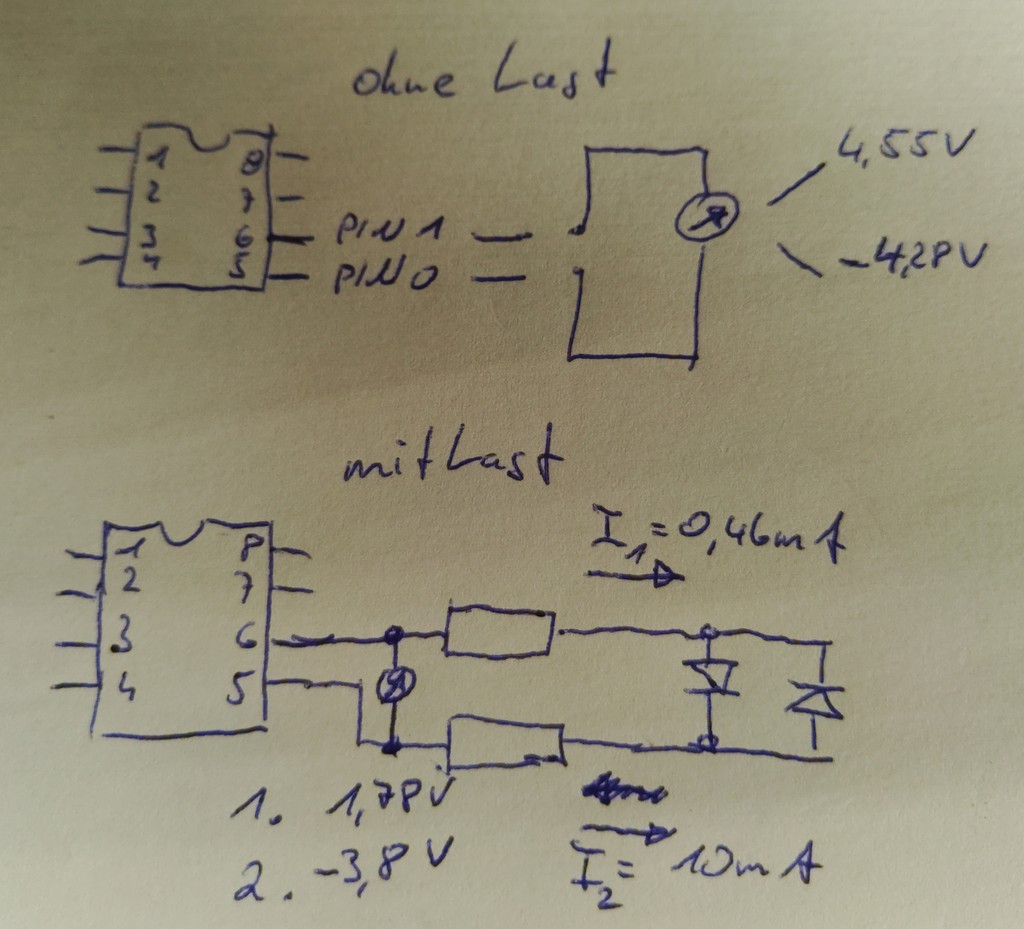 ohne Last
1 8
2 7
3 6 PIN 1
4 5 PIN 0
4,55V
-4,28V
mit Last
I1 = 0,46mA
1 8
2 7
3 6
4 5
1. 1,78V
2. -3,8V
I2 = 10mA